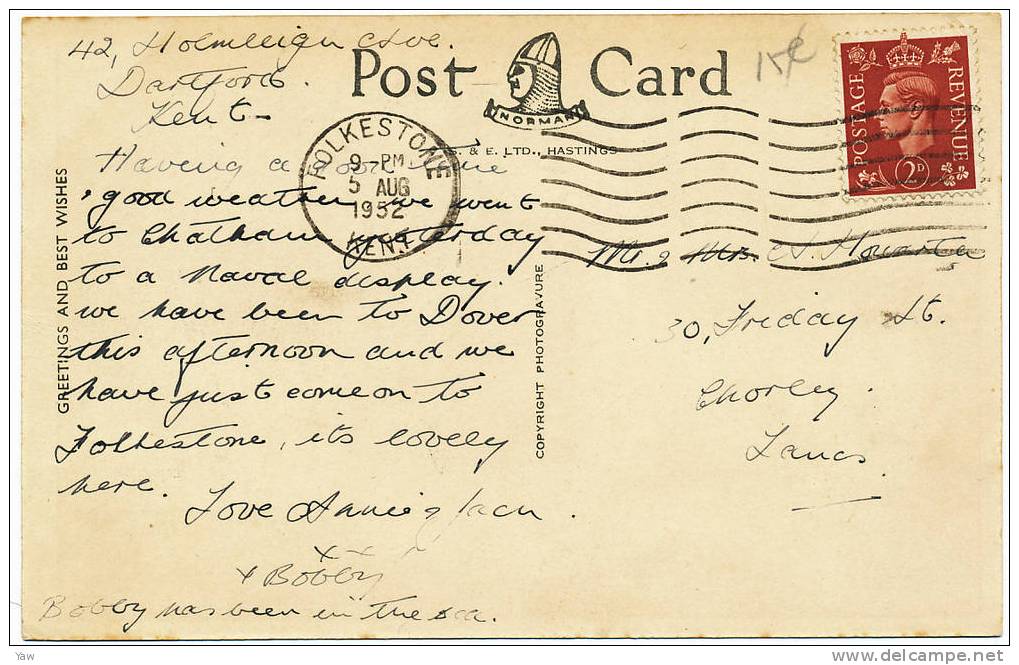 42, Holmleigh Ave.
Dartford.
Kent
Post Card
NORMAN
S. & E. LTD., HASTINGS
15
POSTAGE REVENUE
2D
FOLKESTONE
9 - PM
5 AUG
1952
KENT
Having a good time
good weather, we went
to Chatham yesterday
to a Naval display.
we have been to Dover
this afternoon and we
have just come on to
Folkestone, its lovely
here.
Love Annie & Jack.
x x x
x Bobby
Bobby has been in the sea.
GREETINGS AND BEST WISHES
COPYRIGHT PHOTOGRAVURE
Mr. & Mrs. Howarth
30, Friday St.
Chorley.
Lancs.
Yaw
delcampe.net